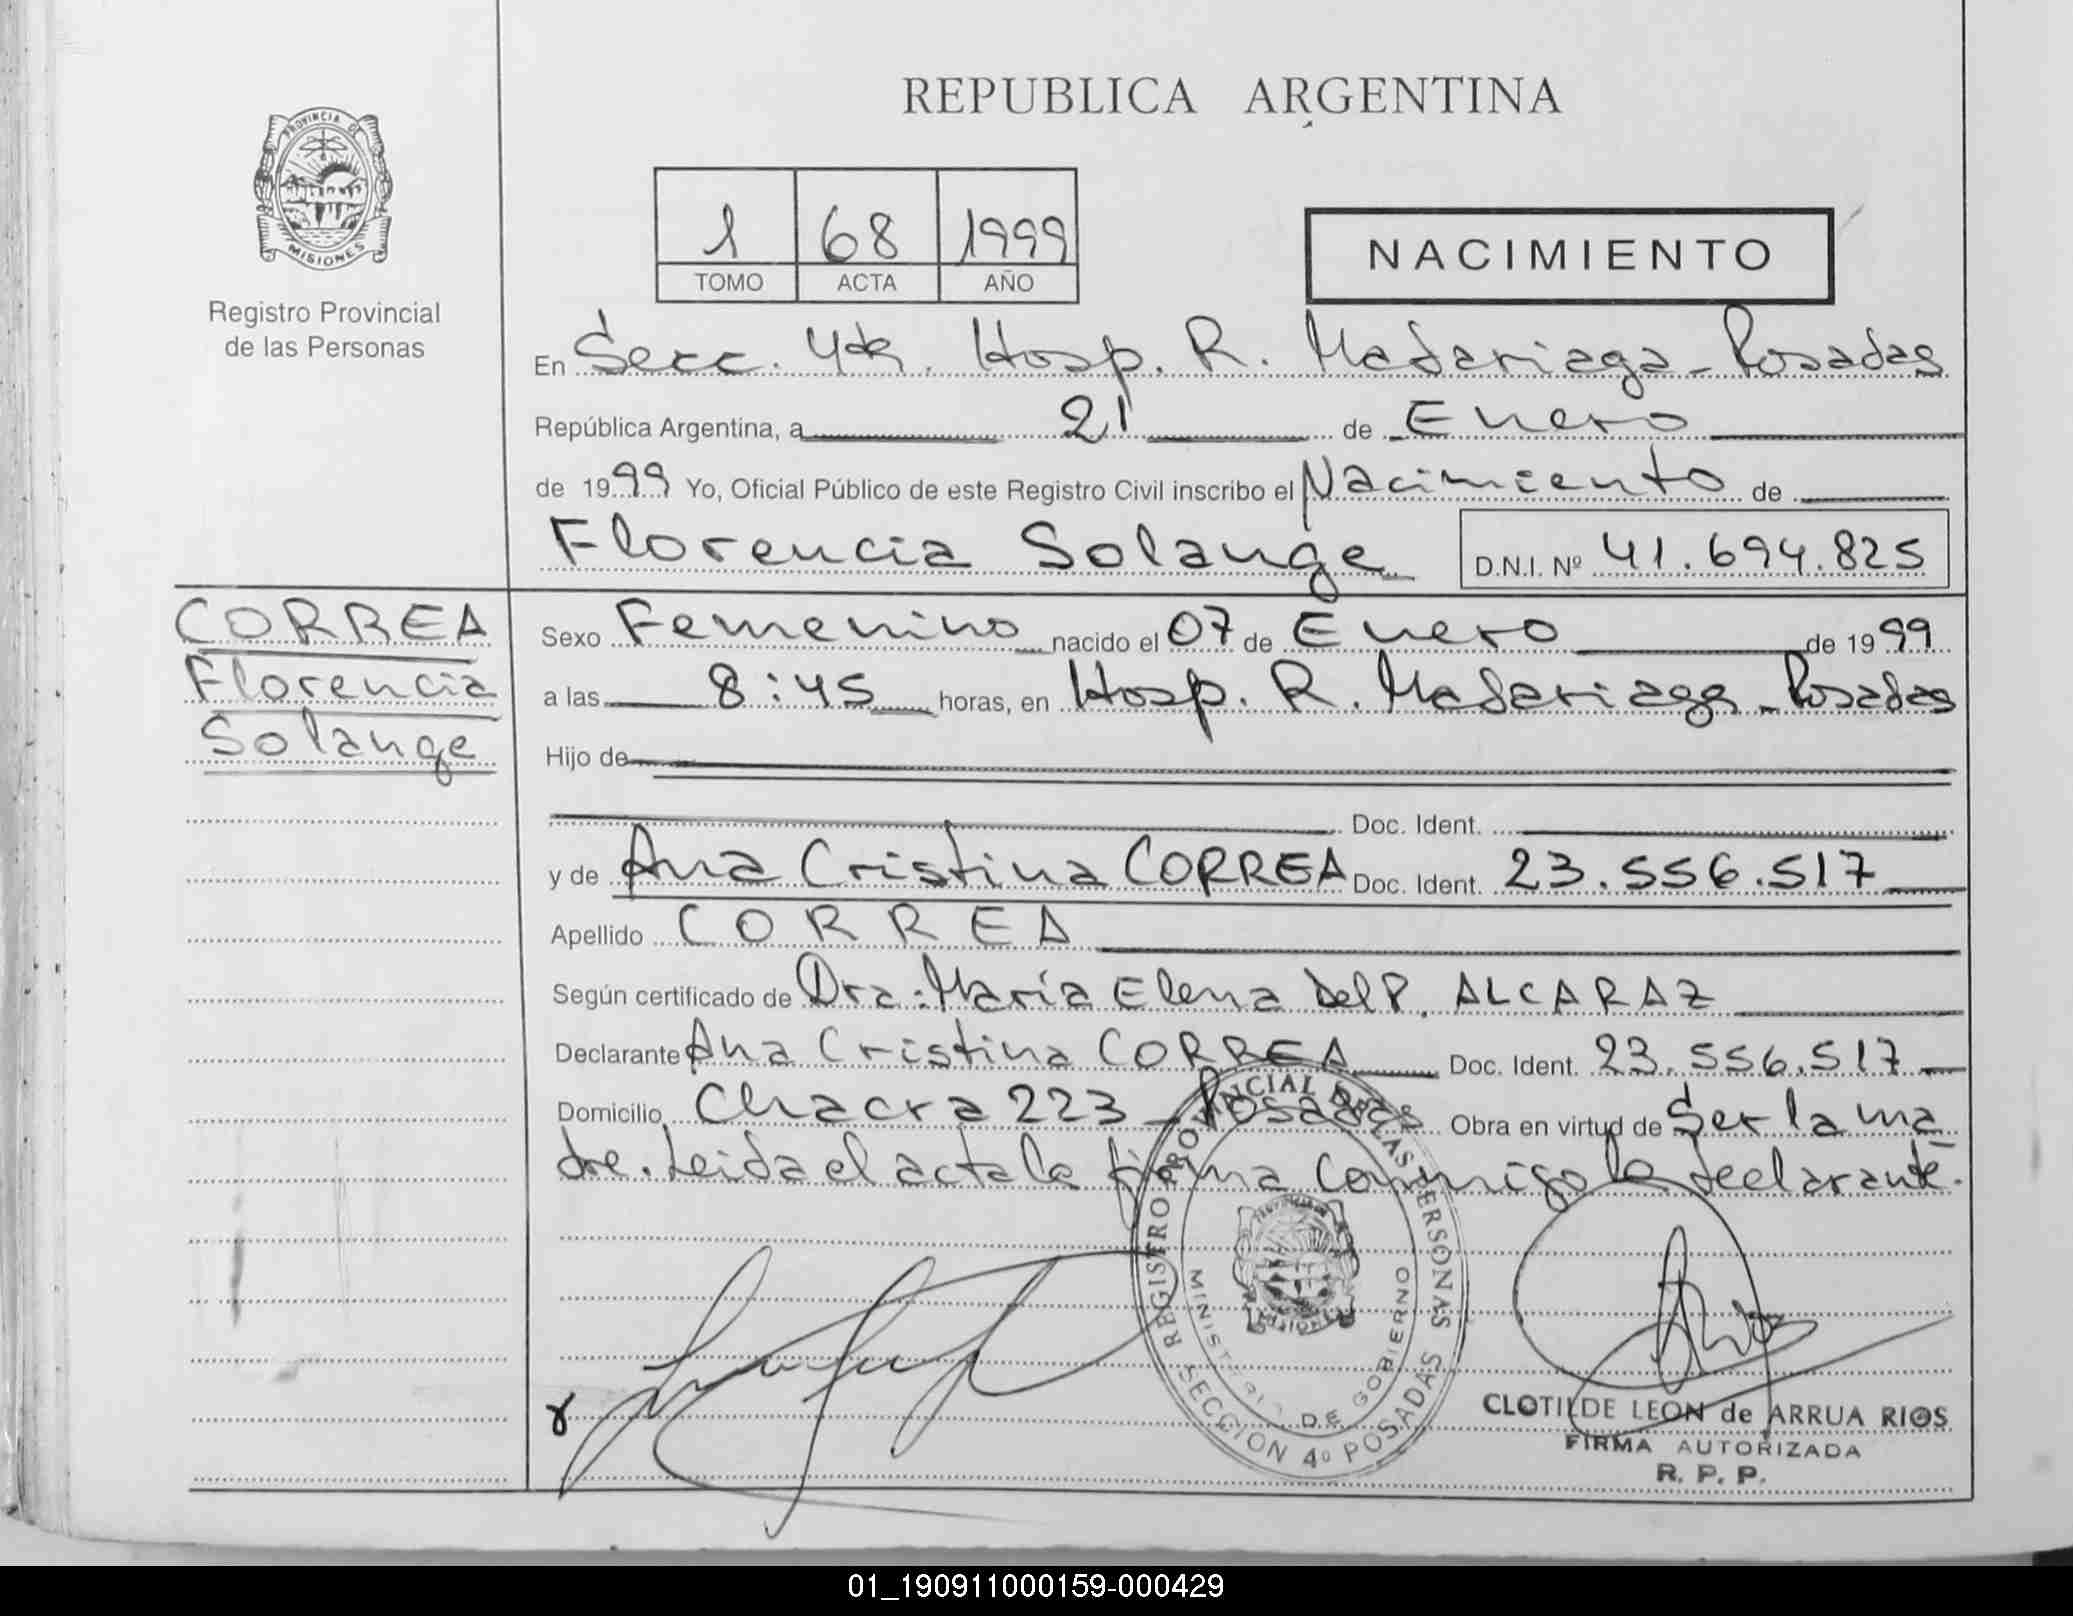 REPUBLICA ARGENTINA
PROVINCIA DE
MISIONES
Registro Provincial
de las Personas
1 68 1999
TOMO ACTA AÑO
NACIMIENTO
En Secc. 4ta. Hosp. R. Madariaga - Posadas
República Argentina, a 21 de Enero
de 1999 Yo, Oficial Público de este Registro Civil inscribo el Nacimiento de
Florencia Solange D.N.I. Nº 41.694.825
CORREA
Florencia
Solange
Sexo Femenino nacido el 07 de Enero de 1999
a las 8:45 horas, en Hosp. R. Madariaga - Posadas
Hijo de
Doc. Ident.
y de Ana Cristina CORREA Doc. Ident. 23.556.517
Apellido CORREA
Según certificado de Dra. María Elena Del P. ALCARAZ
Declarante Ana Cristina CORREA Doc. Ident. 23.556.517
Domicilio Chacra 223 - Posadas Obra en virtud de Ser la ma
dre. Leida el acta la firma conmigo la declarante.
REGISTRO PROVINCIAL DE LAS PERSONAS
MINISTERIO DE GOBIERNO
SECCION 4º POSADAS
CLOTILDE LEON de ARRUA RIOS
FIRMA AUTORIZADA
R. P. P.
01_190911000159-000429